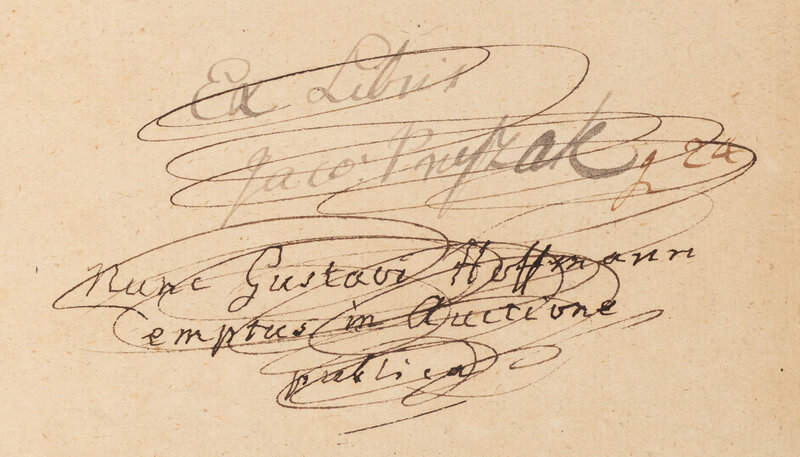 Ex Libris
Jaco: g 24
Nunc Gustavi Hoffmann
emptus in Auctione
publica